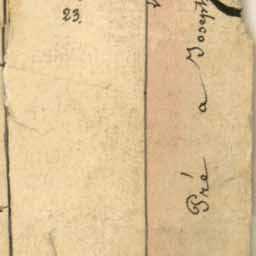 23.
Pré a Joseph